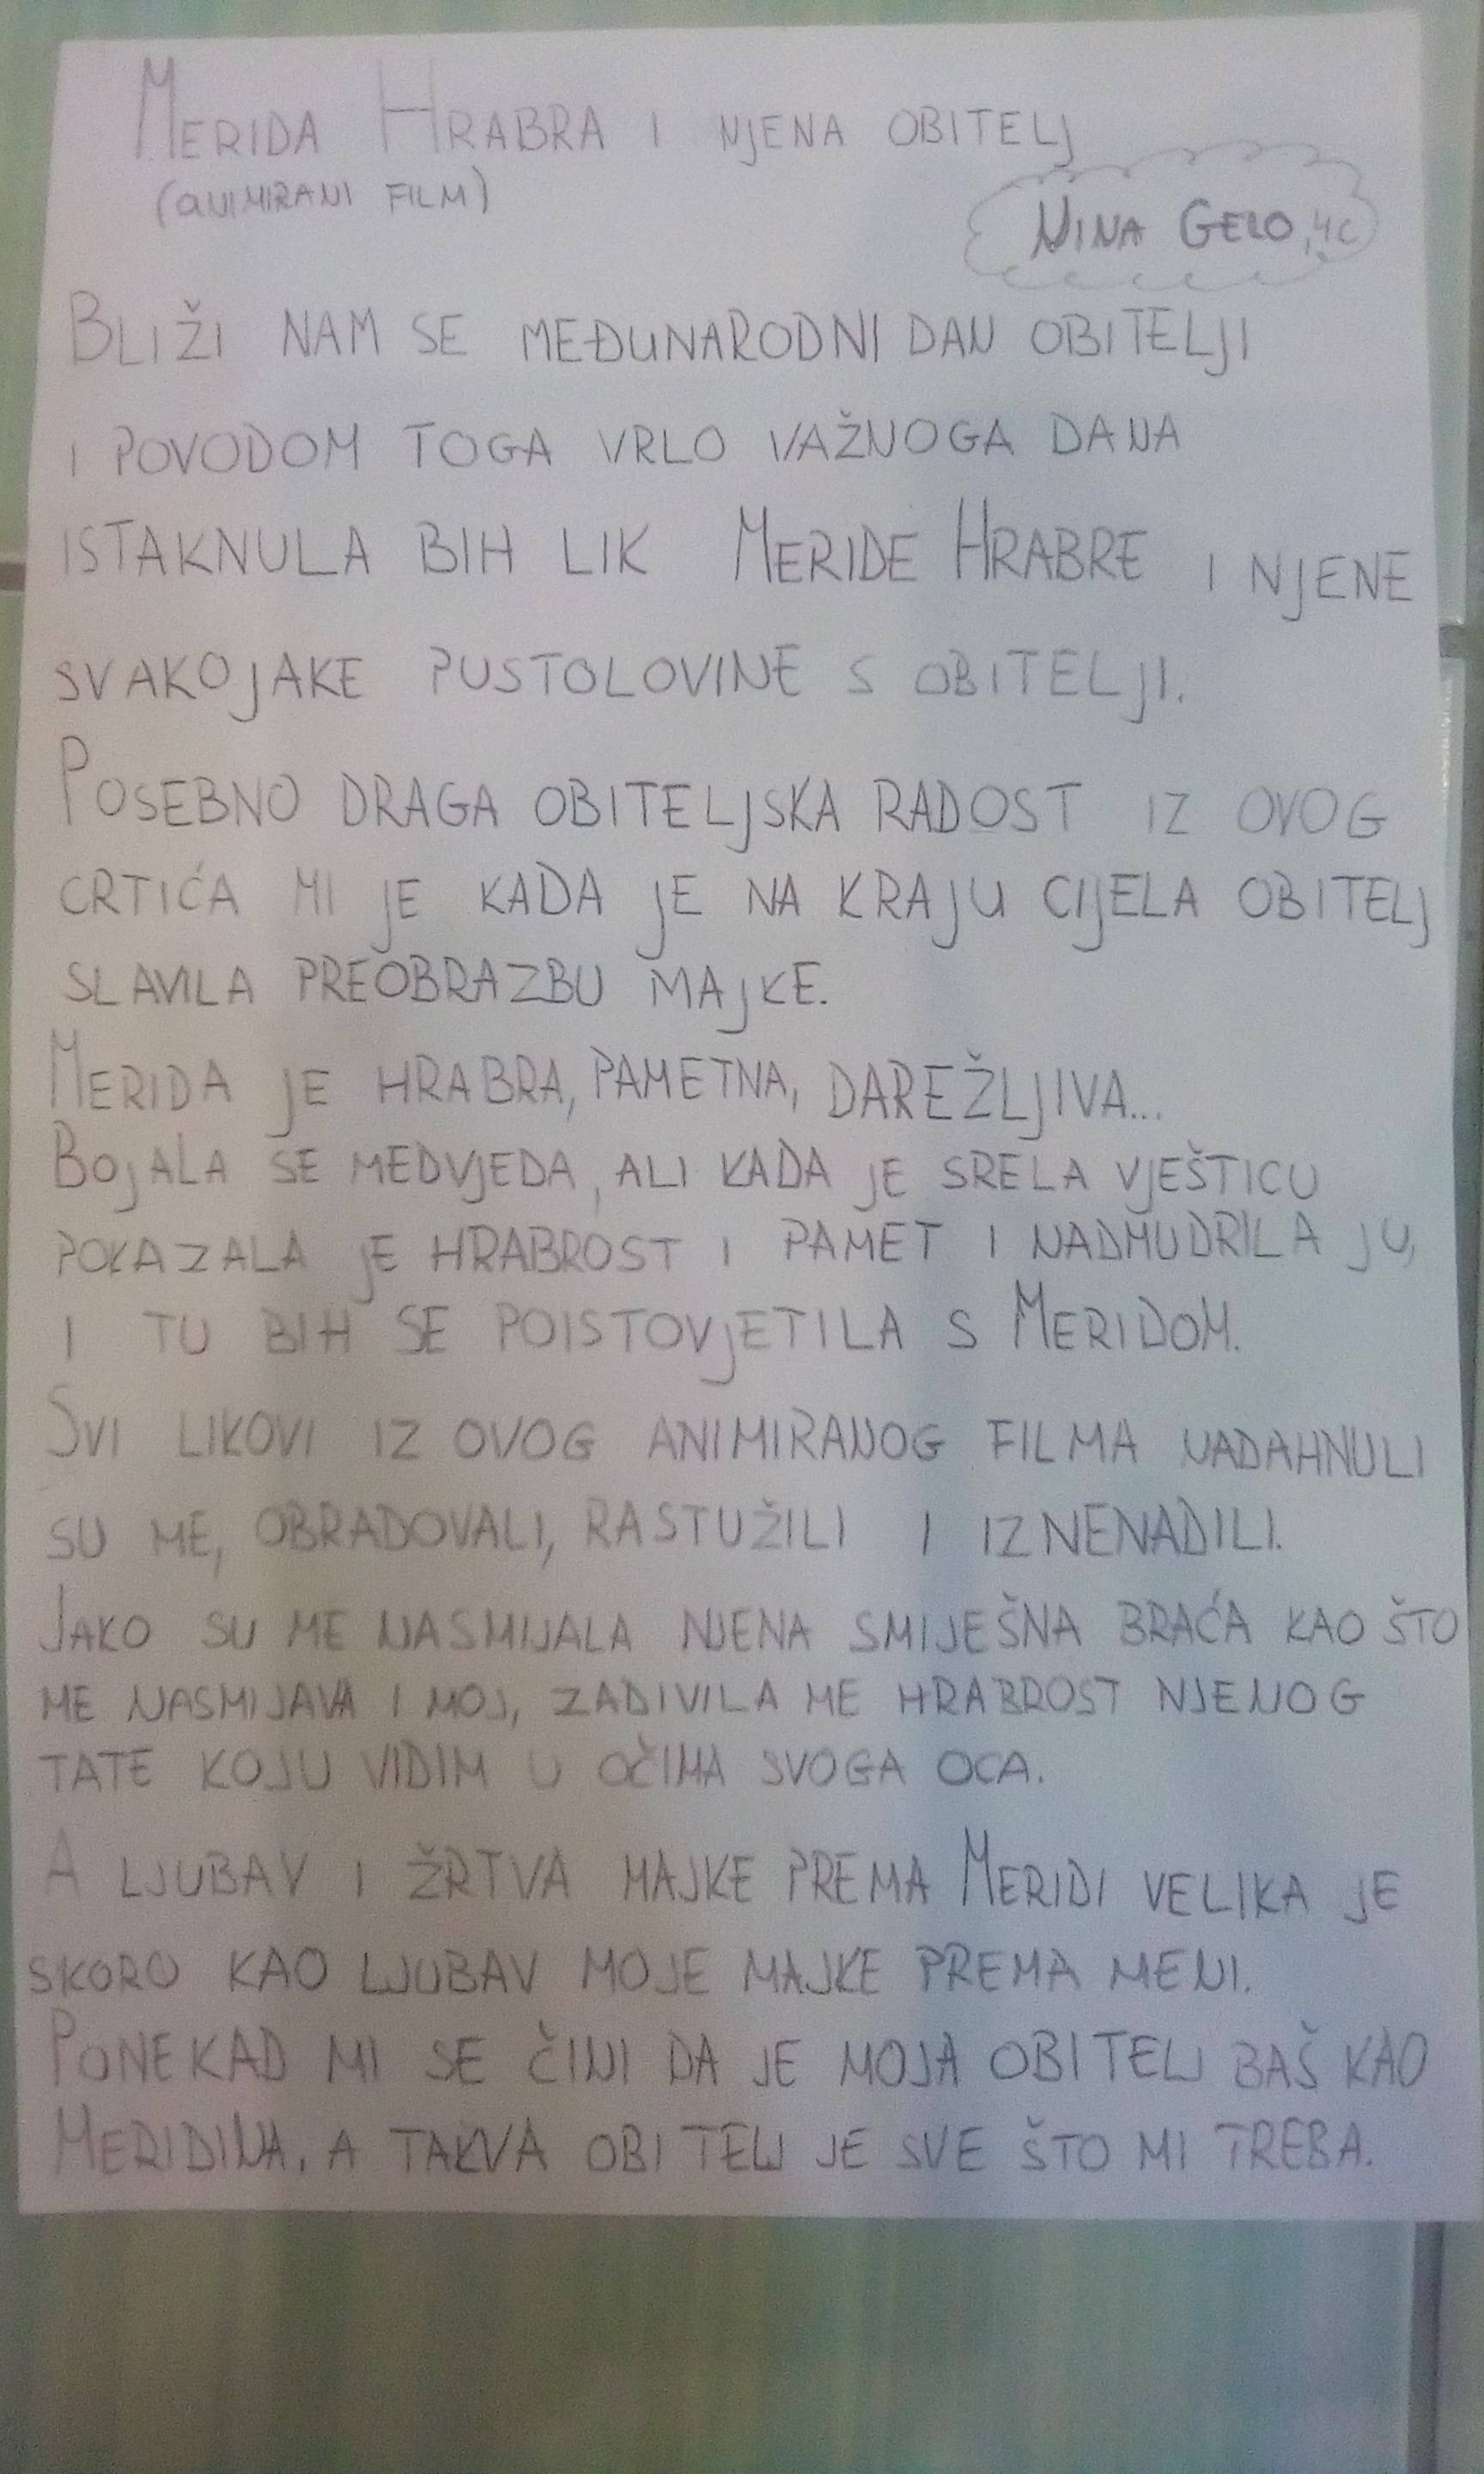 MERIDA HRABRA I NJENA OBITELJ
(ANIMIRANI FILM)
NINA GELO, 4C
BLIŽI NAM SE MEĐUNARODNI DAN OBITELJI
I POVODOM TOGA VRLO VAŽNOGA DANA
ISTAKNULA BIH LIK MERIDE HRABRE I NJENE
SVAKOJAKE PUSTOLOVINE S OBITELJI.
POSEBNO DRAGA OBITELJSKA RADOST IZ OVOG
CRTIĆA MI JE KADA JE NA KRAJU CIJELA OBITELJ
SLAVILA PREOBRAZBU MAJKE.
MERIDA JE HRABRA, PAMETNA, DAREŽLJIVA...
BOJALA SE MEDVJEDA, ALI KADA JE SRELA VJEŠTICU
POKAZALA JE HRABROST I PAMET I NADMUDRILA JU,
I TU BIH SE POISTOVJETILA S MERIDOM.
SVI LIKOVI IZ OVOG ANIMIRANOG FILMA NADAHNULI
SU ME, OBRADOVALI, RASTUŽILI I IZNENADILI.
JAKO SU ME NASMIJALA NJENA SMIJEŠNA BRAĆA KAO ŠTO
ME NASMIJAVA I MOJ, ZADIVILA ME HRABROST NJENOG
TATE KOJU VIDIM U OČIMA SVOGA OCA.
A LJUBAV I ŽRTVA MAJKE PREMA MERIDI VELIKA JE
SKORO KAO LJUBAV MOJE MAJKE PREMA MENI.
PONEKAD MI SE ČINI DA JE MOJA OBITELJ BAŠ KAO
MERIDINA, A TAKVA OBITELJ JE SVE ŠTO MI TREBA.